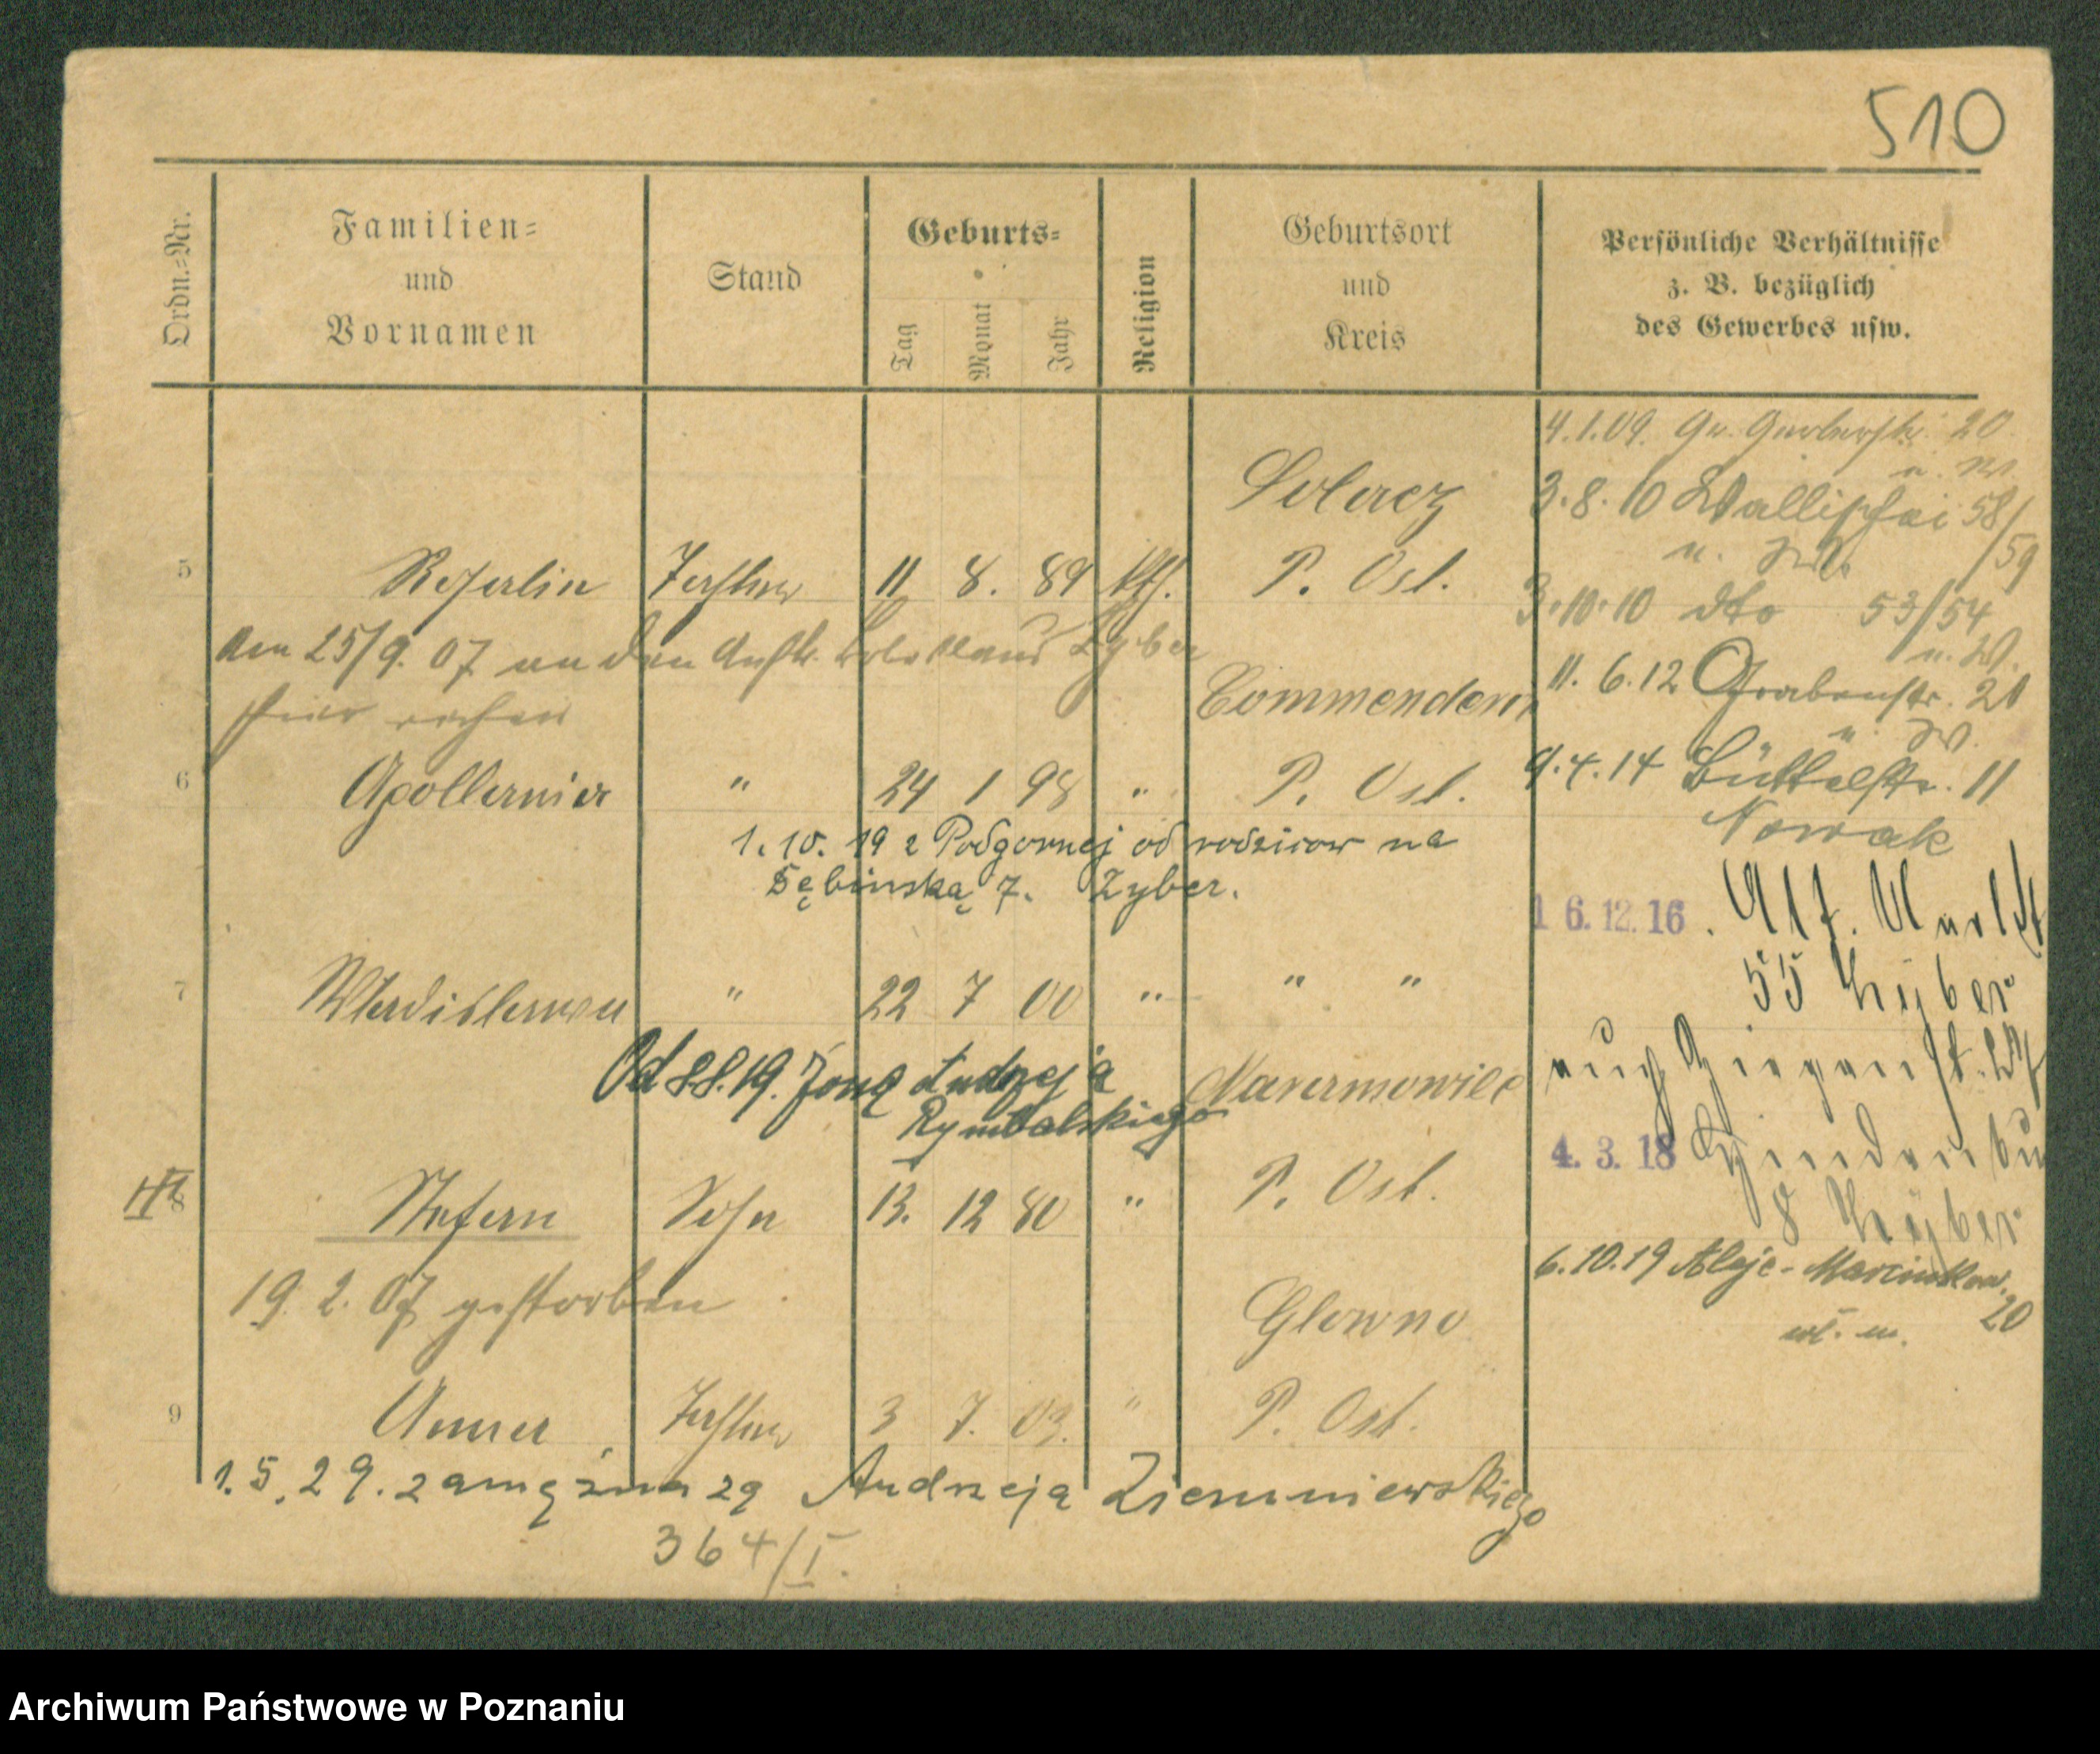 510
Ordn.-Nr.
Familien-
und
Vornamen
Stand
Geburts-
Tag
Monat
Jahr
Religion
Geburtsort
und
Kreis
Persönliche Verhältnisse
z. B. bezüglich
des Gewerbes usw.
4.1.09. Gr. Gerberstr. 20
Solacz
3.8.10 Wallischei 58/
59
5 Tochter 11 8. 89 kth. P. Ost.
3.10.10 dto 53/54
den 25/9. 07 an den
Commenderie
11. 6.12 Grabenstr. 21
6 Apollonia " 24 1 98 " P. Ost.
9.4.14 Büttelstr. 11
Nowak
1.10.19 z Podgornej od rodzicow na
Dębinską 7. Zyber.
16.12.16. Alt. Markt
55 Zyber
7 Wladislawa " 22 7 00 " " "
Od 8.8.19. żoną Andrzeja
Rymbalskiego
Naramowice
4. 3. 18
8 Zyber
8 Stefan Sohn 13. 12 80 " P. Ost.
19. 2. 07 gestorben
6.10.19 Aleje-Marcinkow.
20
wł. m.
Glowno
9 Anna Tochter 3 7. 03. " P. Ost.
1.5.29. zamężna za Andrzeja Ziemniewskiego
364/I.
Archiwum Państwowe w Poznaniu